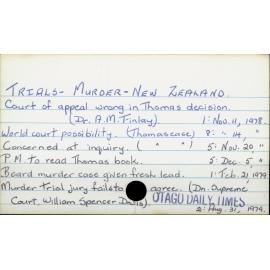 TRIALS - MURDER - NEW ZEALAND.
Court of appeal wrong in Thomas decision.
(Dr. A.M. Finlay). 1: Nov. 11, 1978.
World court possibility. (Thomas case) 8: " 14, "
Concerned at inquiry. ( " " ) 5: Nov. 20, "
P.M. to read Thomas book. 5: Dec. 5, "
Beard murder case given fresh lead. 1: Feb. 21, 1979
Murder trial jury fails to agree. (Dn. Supreme
Court, William Spencer OTAGO DAILY TIMES
2: Aug. 31, 1979.